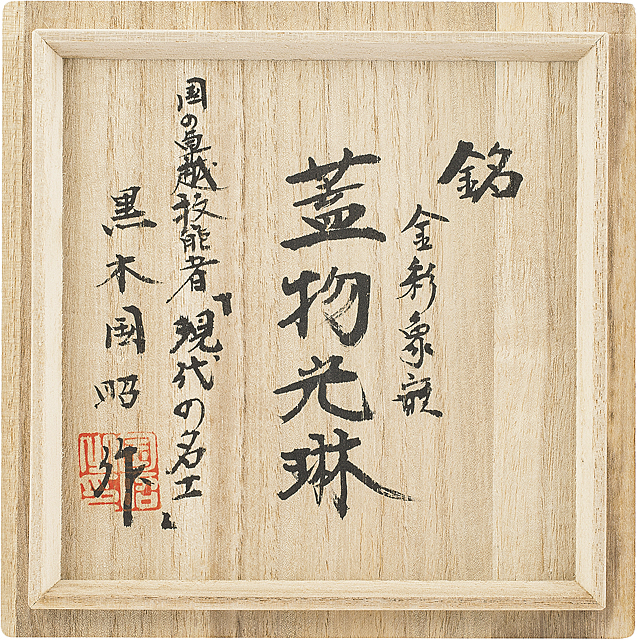 銘
金彩象嵌
蓋物光琳
国の卓越技能者「現代の名工」
黒木国昭作